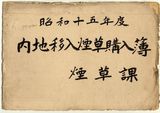 昭和十五年度
内地移入煙草購入簿
煙草課